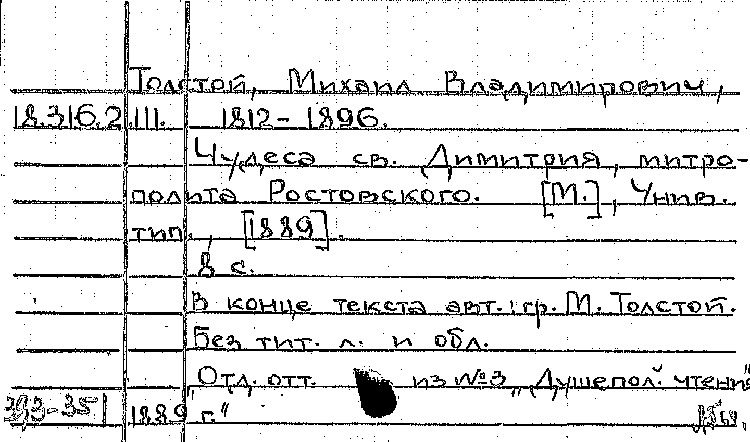 Толстой, Михаил Владимирович,
18.316.2.III. 1812-1896.
Чудеса св. Димитрия, митро-
полита Ростовского. [М.], Унив.
тип., [1889].
8 с.
В конце текста авт.: гр. М. Толстой.
Без тит. л. и обл.
"Отд. отт. из №3 „Душепол. чтения
1889 г."